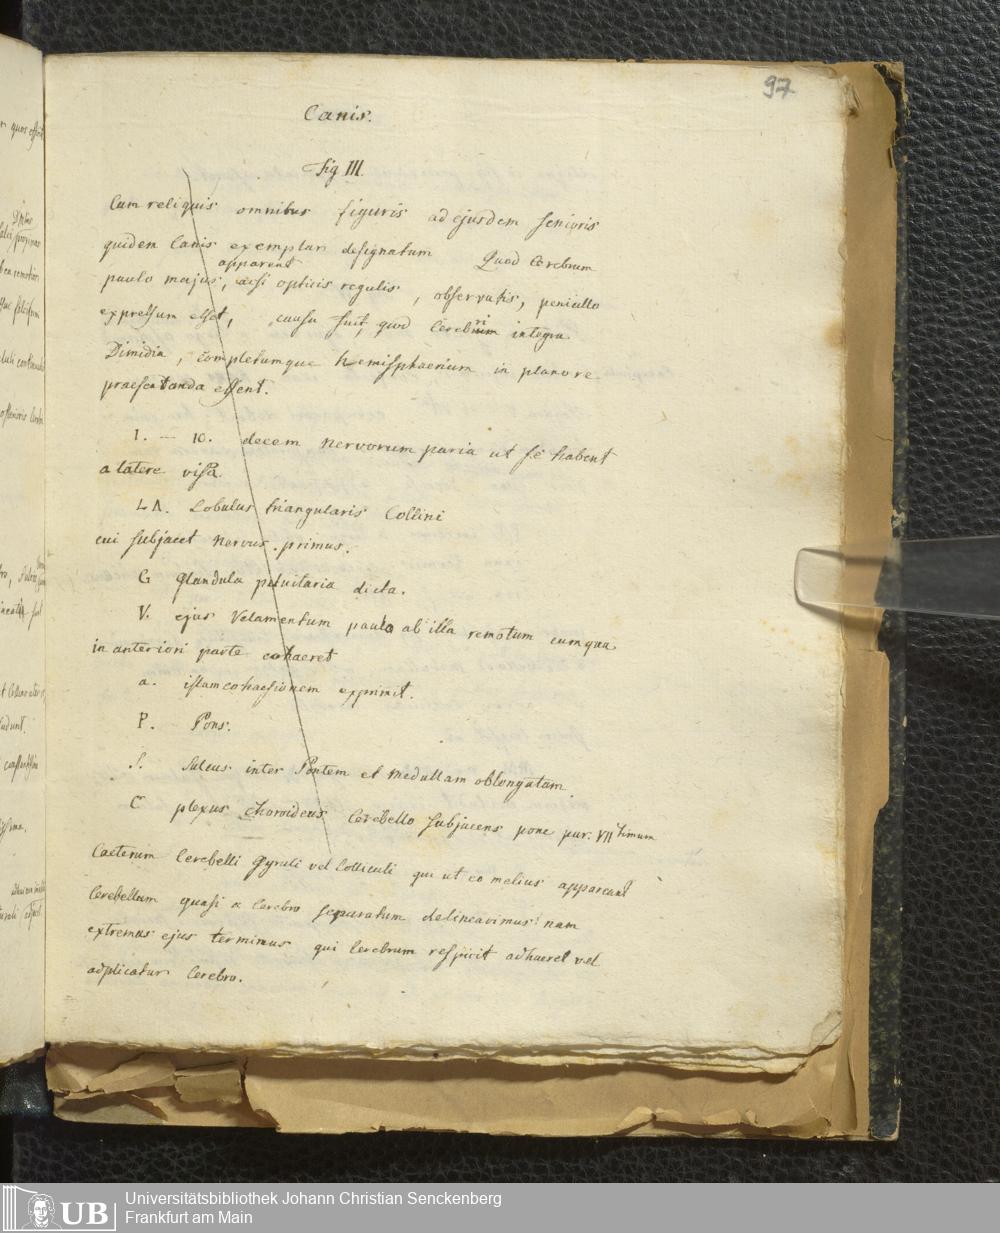 97
Canis.
Fig III.
Cum reliquis omnibus figuris ad ejusdem senioris
quidem Canis exemplar designatum Quod Cerebrum
apparent
paulo majus, acsi opticis regulis, observatis, penicillo
expressum esset, causa fuit, quod Cerebri integra
Dimidia, completumque hemisphaerium in plano re
praesentanda essent.
1. — 10. decem nervorum paria ut se habent
a latere visa.
LΔ. Lobulus triangularis Collini
cui subjacet nervus primus.
G Glandula pituitaria dicta.
V. ejus Velamentum paulo ab illa remotum cum qua
in anteriori parte cohaeret
a. istam cohaesionem exprimit.
P. Pons.
S. Sulcus inter Pontem et Medullam oblongatam.
C plexus Choroideus Cerebello subjacens pone par. VII timum
Caeterum Cerebelli Gyruli vel Colliculi qui ut eo melius appareant
Cerebellum quasi a Cerebro separatum delineavimus nam
extremus ejus terminus qui Cerebrum respicit adhaeret vel
adplicatur Cerebro.
UB
Universitätsbibliothek Johann Christian Senckenberg
Frankfurt am Main